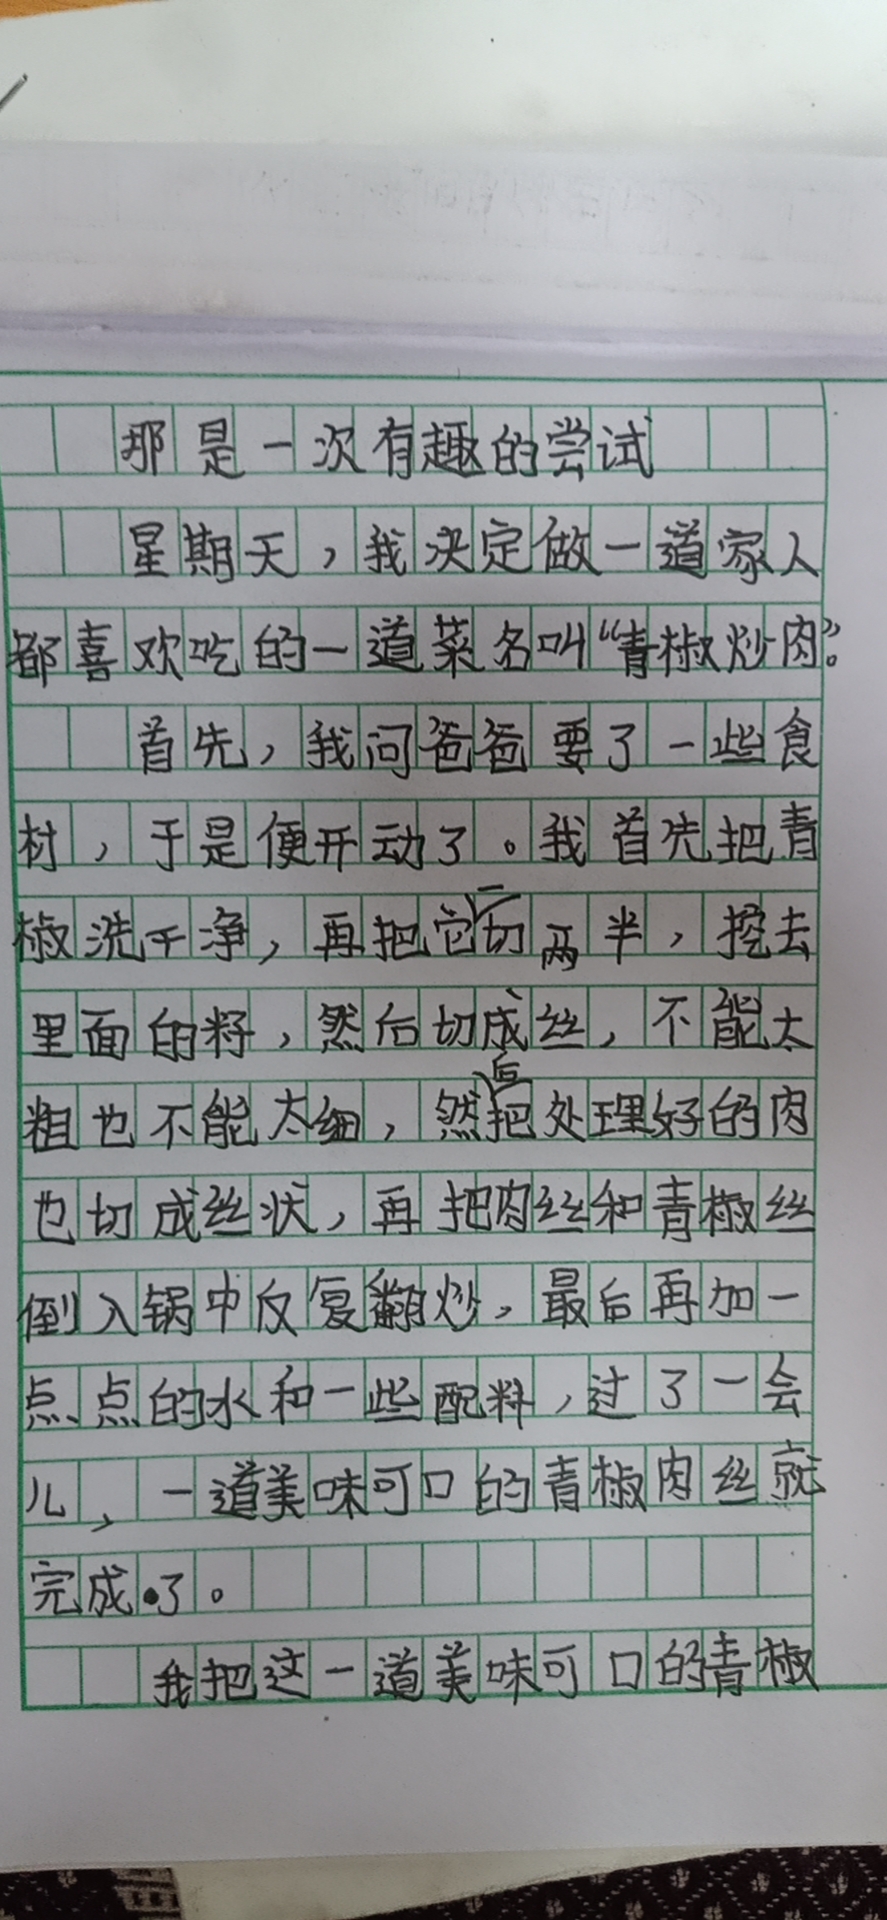 那是一次有趣的尝试
星期天，我决定做一道家人
都喜欢吃的一道菜名叫“青椒炒肉”。
首先，我问爸爸要了一些食
材，于是便开动了。我首先把青
椒洗干净，再把它一切两半，挖去
里面的籽，然后切成丝，不能太
粗也不能太细，然后把处理好的肉
也切成丝状，再把肉丝和青椒丝
倒入锅中反复翻炒，最后再加一
点点的水和一些配料，过了一会
儿，一道美味可口的青椒肉丝就
完成了。
我把这一道美味可口的青椒